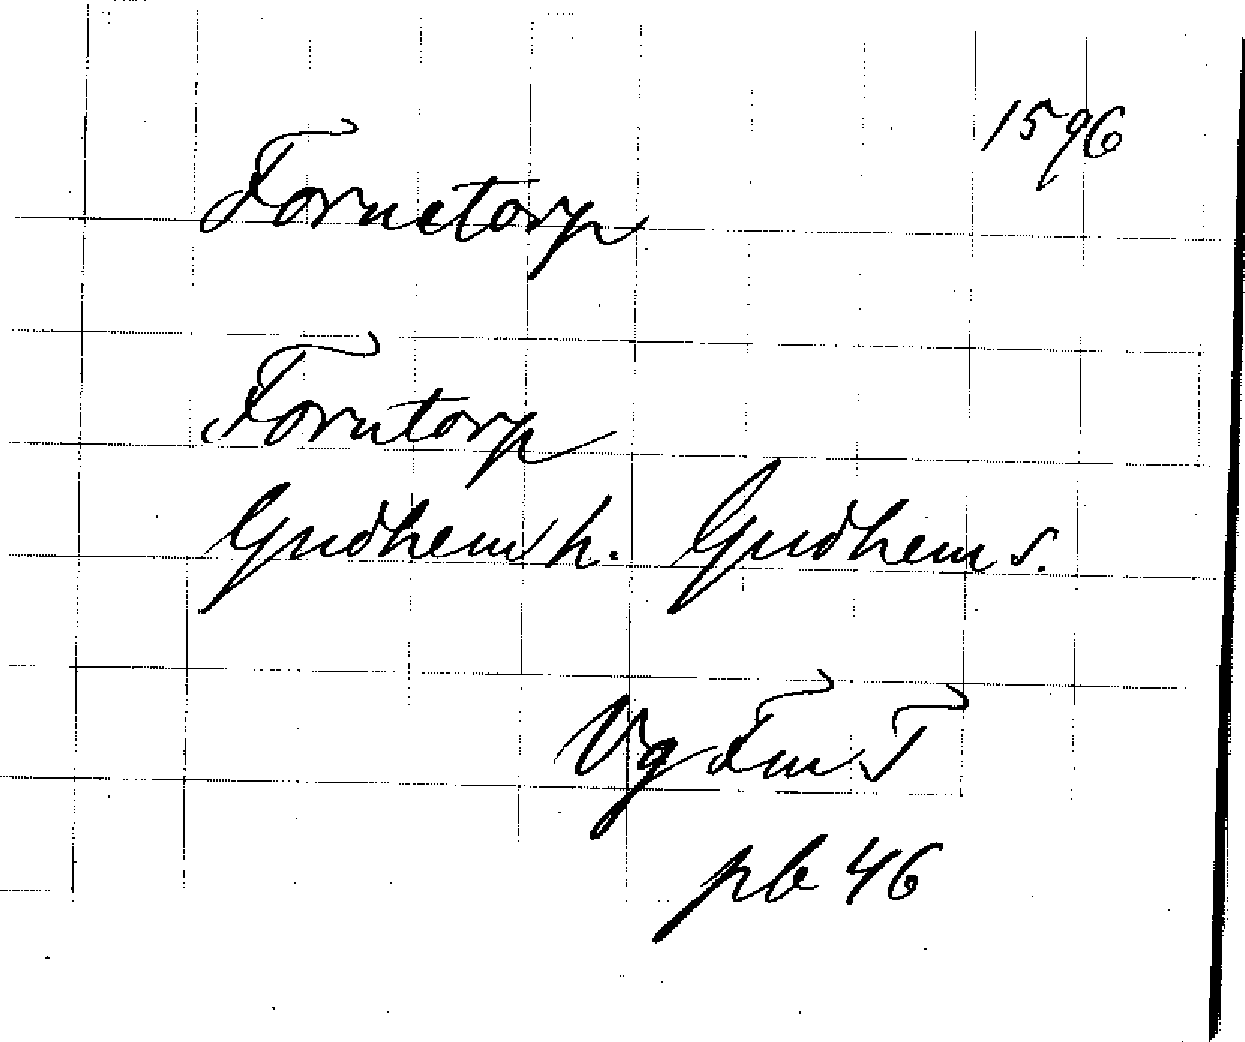 1596
Fornetorp
Forntorp
Gudhems h. Gudhem s.
Vg
pb 46